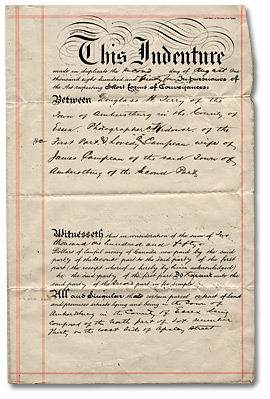 This Indenture
made in duplicate the second day of August One
thousand eight hundred and ninety four In pursuance of
the Act respecting Short Forms of Conveyances:
Between Douglass H. Terry of the
Town of Amherstburg in the County of
Essex, Photographer & Widower of the
First Part & Lovedy Campeau wife of
James Campeau of the said Town of
Amherstburg of the Second Part
Witnesseth that in consideration of the sum of
thousand one hundred and fifty
Dollars of lawful money of Canada now paid by the said
party of the second part to the said party of the first
part (the receipt whereof is hereby by him acknowledged)
he the said party of the first part Do Grant unto the said
party of the second part in fee simple
All and Singular that certain parcel or tract of land
and premises situate lying and being in the Town of
Amherstburg in the County of Essex being
composed of the North part of Lot number
Thirty on the West side of Apsley Street